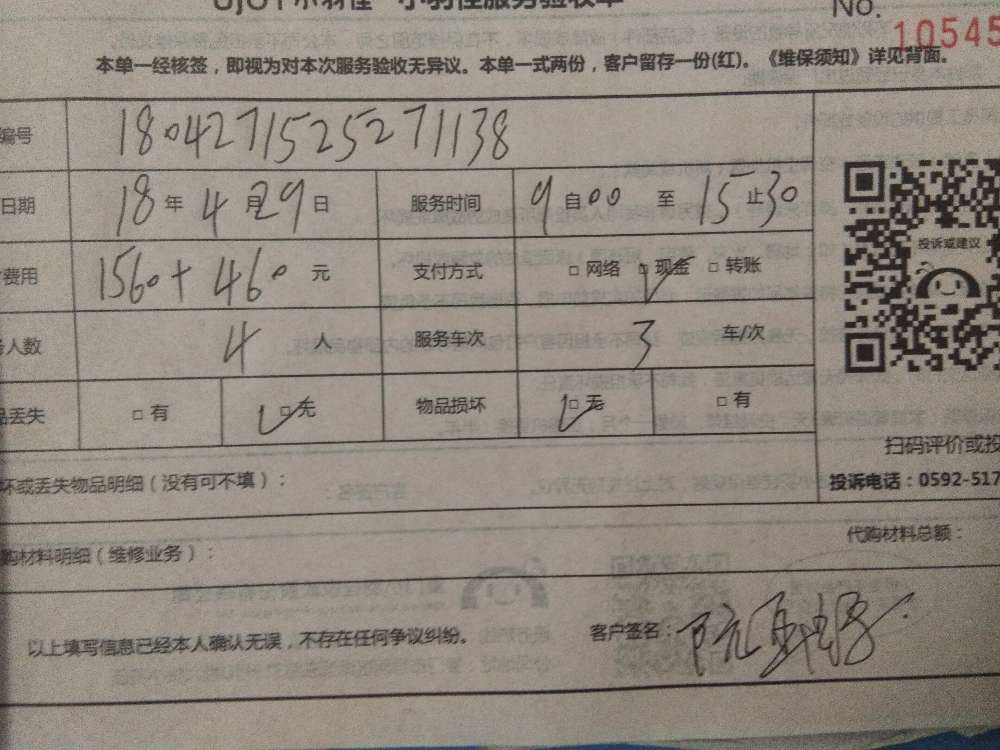 小羽佳 小羽佳服务验收单
No. 10545
本单一经核签，即视为对本次服务验收无异议。本单一式两份，客户留存一份(红)。《维保须知》详见背面。
编号 180427152527 1138
日期 18年4月29日 服务时间 9自00至15止30
费用 1560+460元 支付方式 □网络 □现金 □转账
人数 4人 服务车次 3 车/次
品丢失 □有 □无 物品损坏 □无 □有
投诉或建议
扫码评价或投
坏或丢失物品明细（没有可不填）：
投诉电话：0592-517
购材料明细（维修业务）：
代购材料总额：
以上填写信息已经本人确认无误，不存在任何争议纠纷。 客户签名：